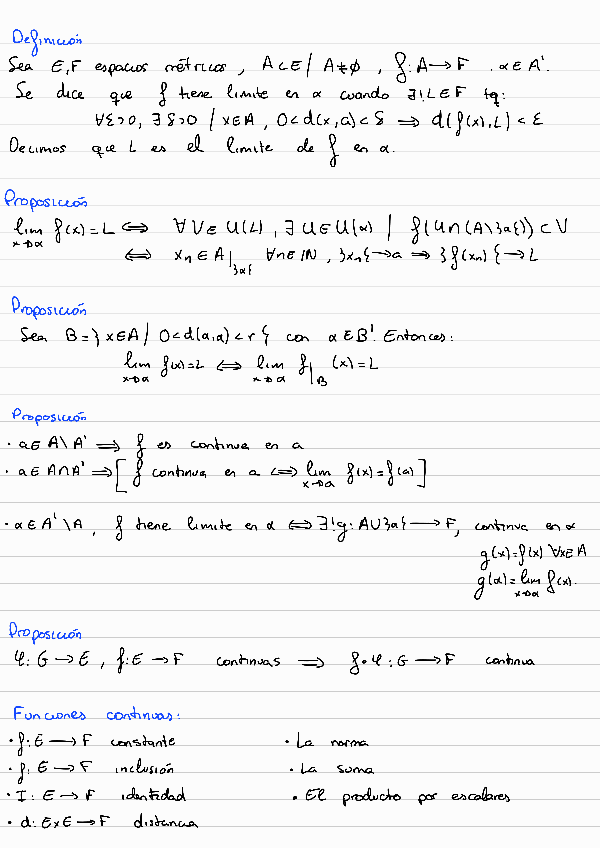 Definición
Sea E,F espacios métricos, A⊂E / A≠∅, f: A→F. α∈A'.
Se dice que f tiene limite en α cuando ∃!L∈F tq:
∀ε>0, ∃δ>0 / x∈A, 0<d(x,α)<δ ⟹ d(f(x),L)<ε
Decimos que L es el limite de f en α.
Proposición
lim_{x→α} f(x)=L ⟺ ∀V∈U(L), ∃U∈U(α) | f(U∩(A\}α{))⊂V
⟺ x_n∈A|_{}α{} ∀n∈ℕ, }x_n{→a ⟹ }f(x_n){→L
Proposición
Sea B=}x∈A / 0<d(a,α)<r{ con α∈B'. Entonces:
lim_{x→α} f(x)=L ⟺ lim_{x→α} f|_B (x)=L
Proposición
· a∈A\A' ⟹ f es continua en a
· a∈A∩A' ⟹ [f continua en a ⟺ lim_{x→a} f(x)=f(a)]
· α∈A'\A, f tiene limite en α ⟺ ∃!g: A∪}α{ → F, continua en α
g(x)=f(x) ∀x∈A
g(α)=lim_{x→α} f(x).
Proposición
φ: G→E, f: E→F continuas ⟹ f∘φ: G→F continua
Funciones continuas:
· f: E→F constante · La norma
· f: E→F inclusión · La suma
· I: E→F identidad · El producto por escalares
· d: E×E→F distancia